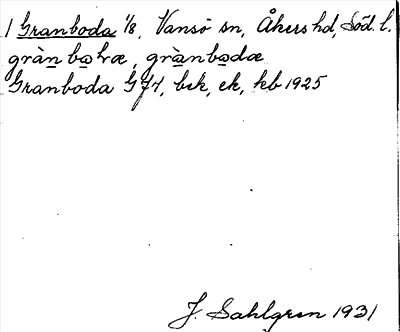 1 Granboda 1/8, Vansö sn, Åkers hd, Söd. l.
gràn bo̱træ, grànbo̱dæ
Granboda G74, bek, ek, kb 1925
J. Sahlgren 1931